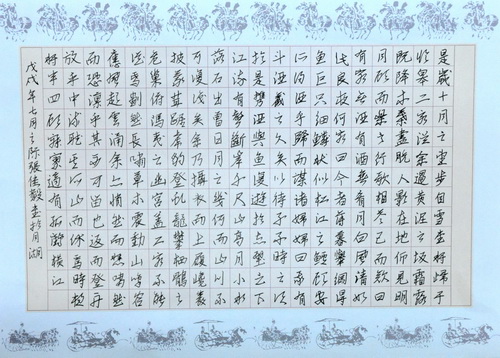 是歲十月之望步自雪堂將歸乎
臨皋二客從余過黃泥之坂霜露
既降木葉盡脫人影在地仰見明
月顧而樂之行歌相答已而嘆曰
有客無酒有酒無肴月白風清如
此良夜何客曰今者薄暮舉網得
魚巨口細鱗狀似松江之鱸顧安
所得酒乎歸而謀諸婦婦曰我有
斗酒藏之久矣以待子不時之須
於是攜酒與魚復遊於赤壁之下
江流有聲斷岸千尺山高月小水
落石出曾日月之幾何而江山不
可復識矣予乃攝衣而上履巉巖
披蒙茸踞虎豹登虬龍攀棲鶻之
危巢俯馮夷之幽宮蓋二客不能
從焉劃然長嘯草木震動山鳴谷
應風起水涌予亦悄然而悲肅然
而恐凜乎其不可留也返而登舟
放乎中流聽其所止而休焉時夜
將半四顧寂寥適有孤鶴橫江
戊戌年七月之際張佳毅書於月湖